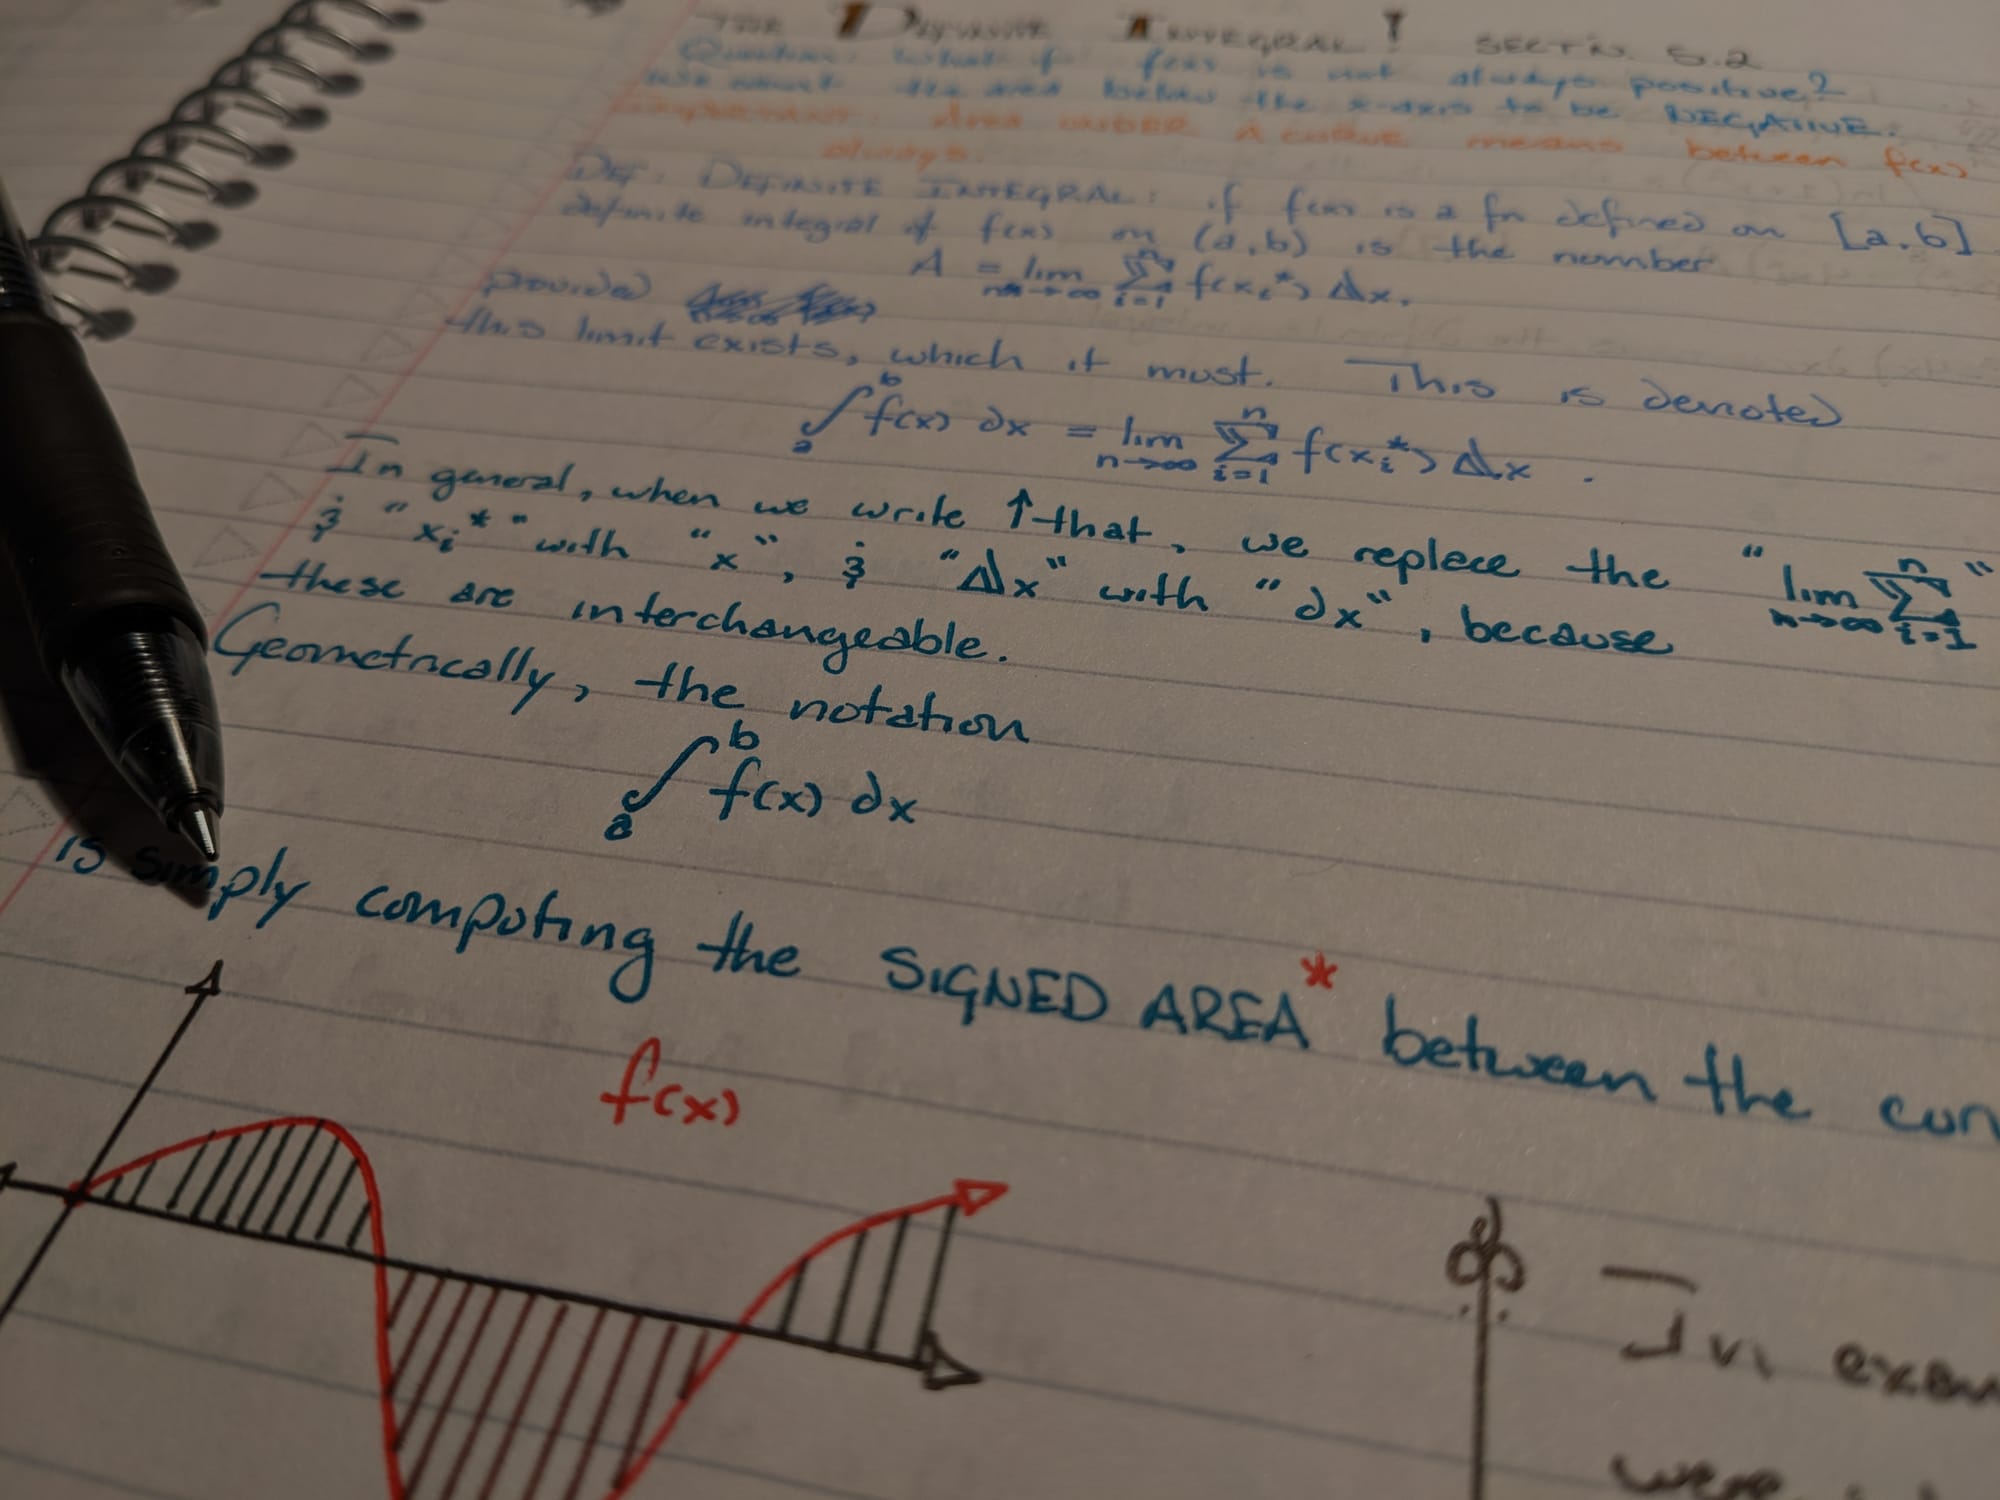 THE DEFINITE INTEGRAL! SECTION 5.2
Question: What if f(x) is not always positive?
We count the area below the x-axis to be NEGATIVE.
Important: Area UNDER A CURVE means between f(x)
always.
DEF: DEFINITE INTEGRAL: if f(x) is a fn defined on [a,b]
definite integral of f(x) on (a,b) is the number
A = lim n→∞ Σ i=1 n f(xi*) Δx.
provided
this limit exists, which it must. This is denoted
∫ a b f(x) dx = lim n→∞ Σ i=1 n f(xi*) Δx.
In general, when we write ↑ that, we replace the "lim n→∞ Σ i=1 n"
& "xi*" with "x", & "Δx" with "dx", because
these are interchangeable.
Geometrically, the notation
∫ a b f(x) dx
is simply computing the SIGNED AREA* between the
f(x)